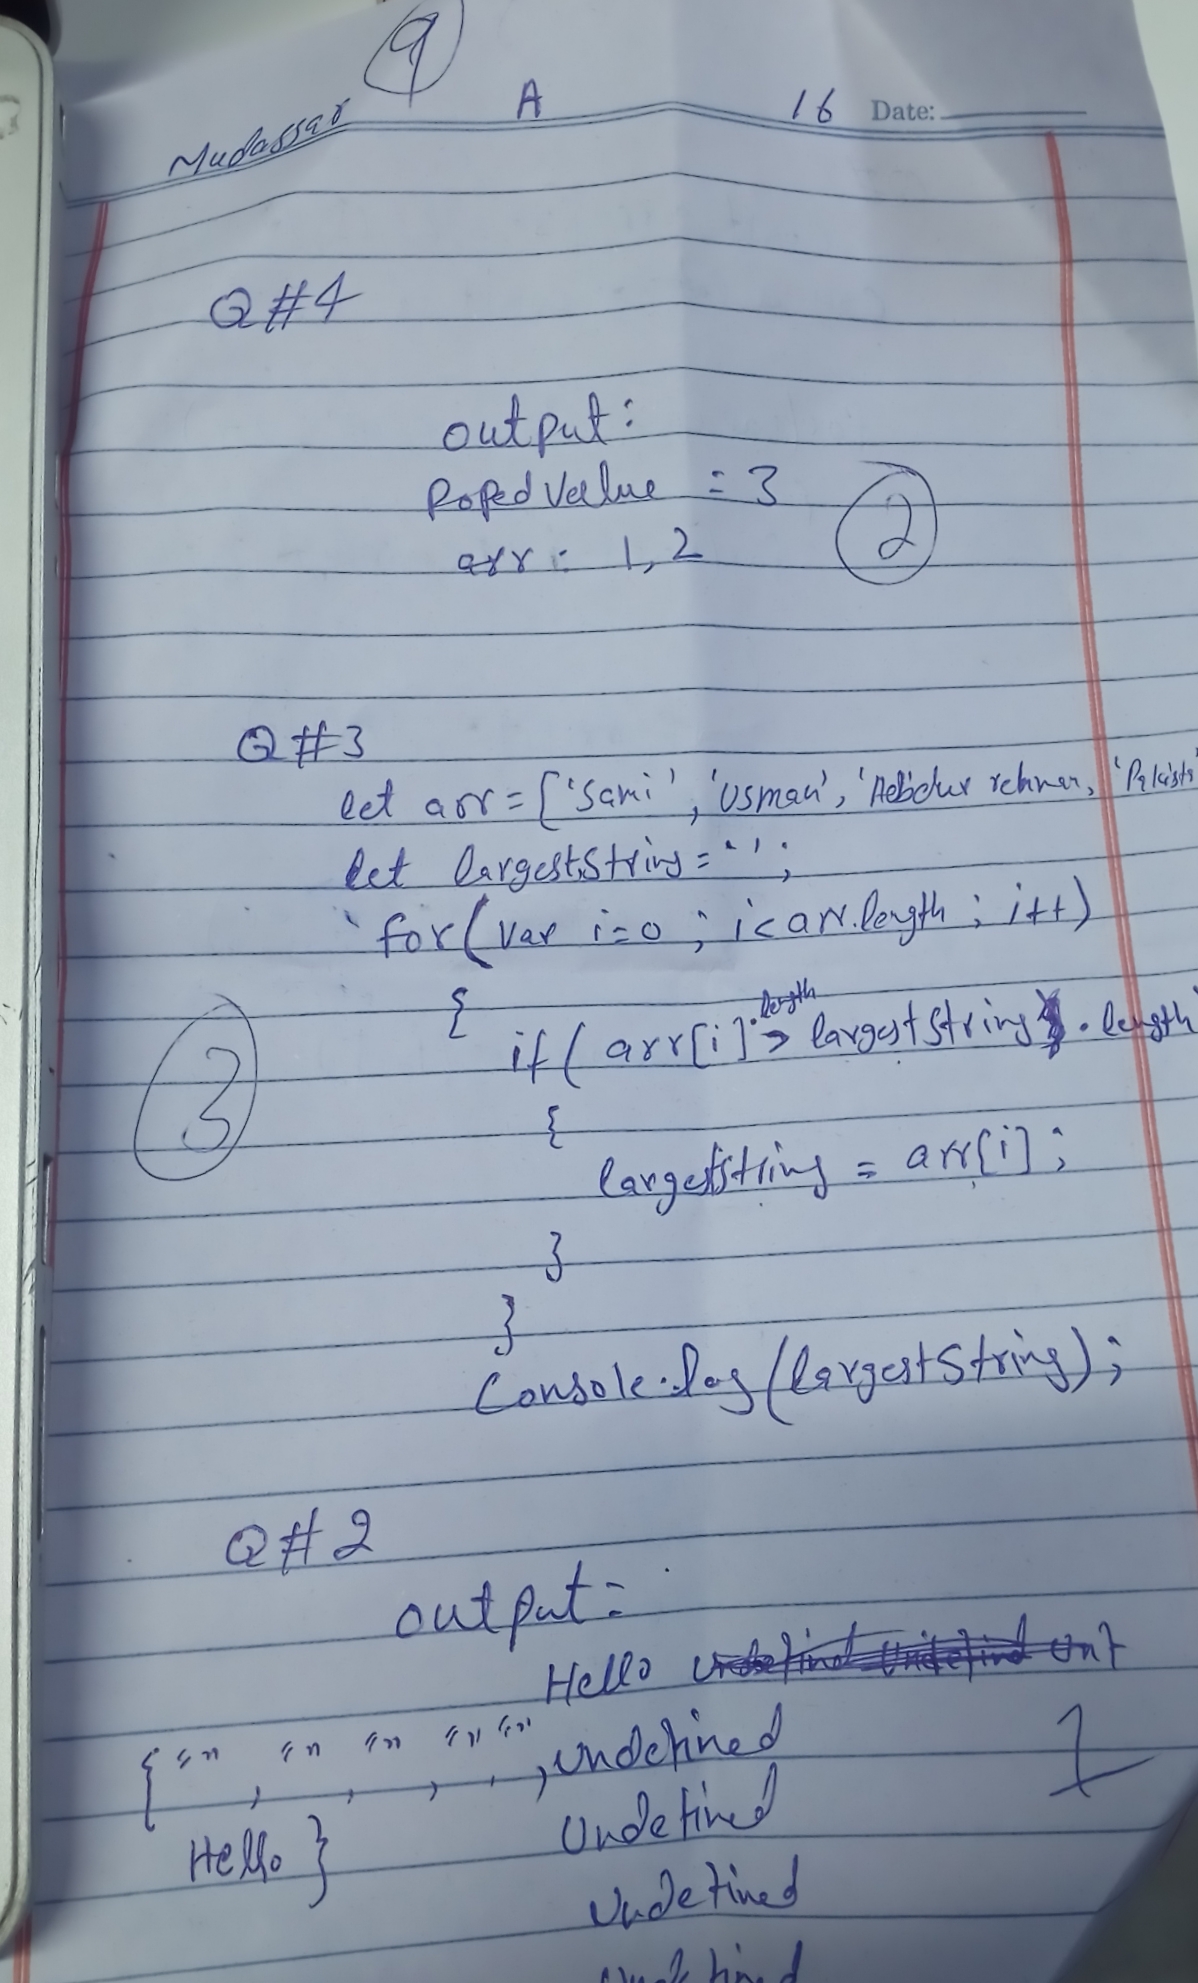 9
Mudassar A 16 Date:
Q#4
output:
Poped Value = 3
arr = 1, 2
2
Q#3
let arr = ['Sami', 'Usman', 'Aebdur rehman, 'Pakista
let largestString = '';
for(var i=0 ; i<arr.length ; i++)
{
if( arr[i].length > largestString.length
3
{
largestString = arr[i];
}
}
Console.log(largestString);
Q#2
output=
Hello
{"", "", "", "", "", undefined
1
Hello }
Undefined
Undefined